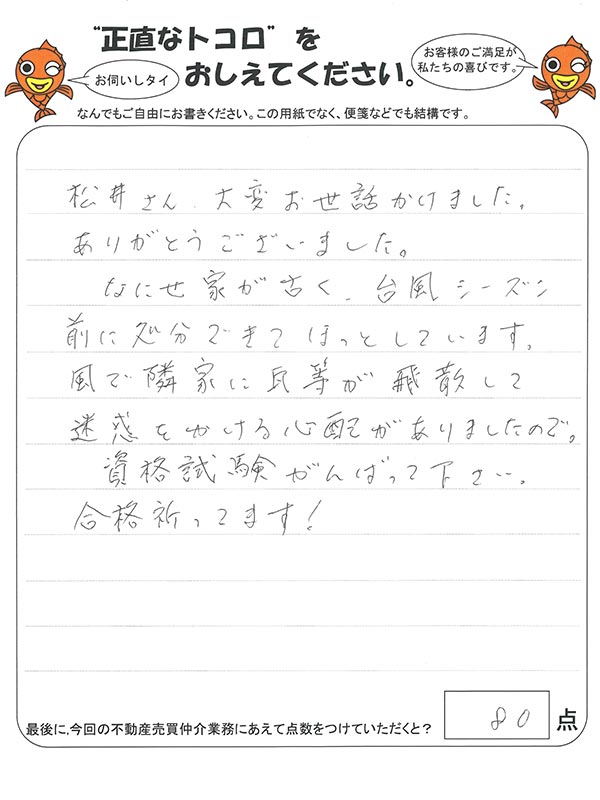 "正直なトコロ"を
おしえてください。
お伺いしタイ
お客様のご満足が
私たちの喜びです。
なんでもご自由にお書きください。この用紙でなく、便箋などでも結構です。
松井さん、大変お世話かけました。
ありがとうございました。
なにせ家が古く、台風シーズン
前に処分できてほっとしています。
風で隣家に瓦等が飛散して
迷惑をかける心配がありましたので。
資格試験がんばって下さい。
合格祈ってます!
最後に、今回の不動産売買仲介業務にあえて点数をつけていただくと?
80点